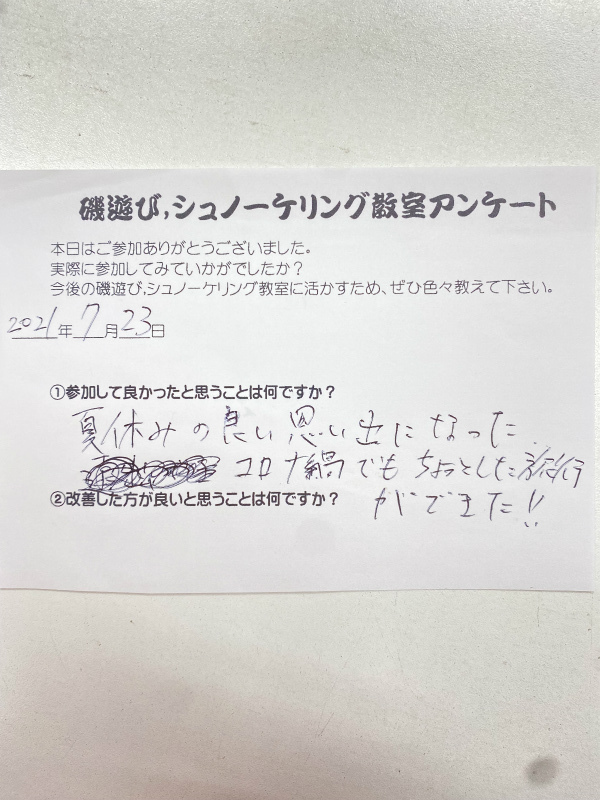 磯遊び,シュノーケリング教室アンケート
本日はご参加ありがとうございました。
実際に参加してみていかがでしたか?
今後の磯遊び,シュノーケリング教室に活かすため、ぜひ色々教えて下さい。
2021年7月23日
①参加して良かったと思うことは何ですか?
夏休みの良い思い出になった.
コロナ禍でもちょっとした旅行
②改善した方が良いと思うことは何ですか?
ができました!!